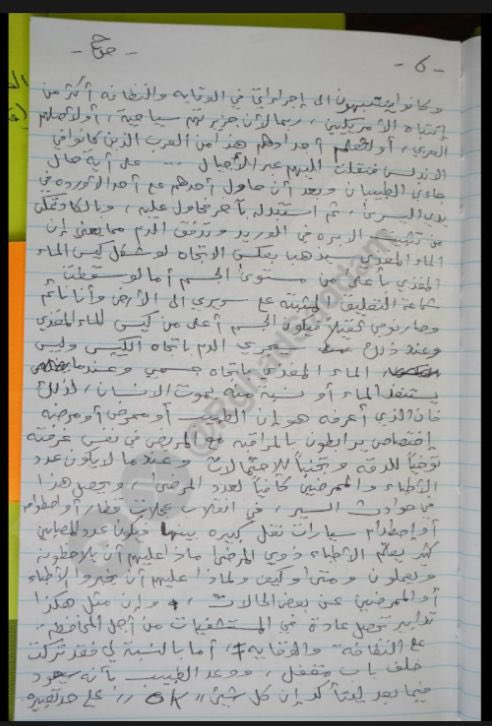 - ٥ -
وكانوا ينتبهون الى إجراءاتي في الوقاية والنظافة أكثر من
إنتباه الأمريكيين، ربما لأن جزيرتهم سياحية، أو لأصلهم
العربي، أو لتعلم أجدادهم هذا من العرب الذين كانوا في
الأندلس فنقلت إليهم عبر الأجيال ... على أية حال
جاءني الطبيبان وبعد أن حاول أحدهم مع أحد الأوردة في
يدي اليسرى، ثم استبدله بآخر فحاول عليه، وبالكاد تمكن
من تثبيت الابره في الوريد وتدفق الدم مما يعني إن
الماء المغذي سيذهب بعكس الاتجاه لو شغل كيس الماء
المغذي بأعلى من مستوى الجسم أما لو سقطت
شماعة التعليق المثبتة مع سريري الى الأرض وأنا نائم
وصار نومي ثقيلا فيكون الجسم أعلى من كيس الماء المغذي
وعند ذلك سيجري الدم باتجاه الكيس وليس
الماء المغذي باتجاه جسمي وعندما
يستنفد الماء أو نسبة منه يموت الانسان، لذلك
فان الذي أعرفه هو إن الطبيب أو ممرض أو ممرضه
إختصاص يرابطون بالمراقبة مع المريض في نفس غرفته
توخياً للدقة وتجنباً للاحتمالات وعندما لا يكون عدد
الأطباء والممرضين كافياً لعدد المرضى، ويحصل هذا
في حوادث السير، في انقلاب عجلات قطار، أو اصطدام
أو إصطدام سيارات نقل كبيره بينها فيكون عدد المصابين
كثر يعلم الأطباء ذوي المرضى ماذا عليهم أن يلاحظونه
ويعملون ومتى وكيف ولماذا عليهم أن يخبروا الأطباء
أو الممرضين عن بعض الحالات، وإن مثل هكذا
تدابير تحصل عادة في المستشفيات من أجل المحافظة
على النظافة والوقاية، أما بالنسبة لي فقد تركت
خلف باب مقفل، ووعد الطبيب بأنه سيعود
فيما بعد ليتأكد إن كل شيئ "ok" على حد تعبيره
@RghadSaddam